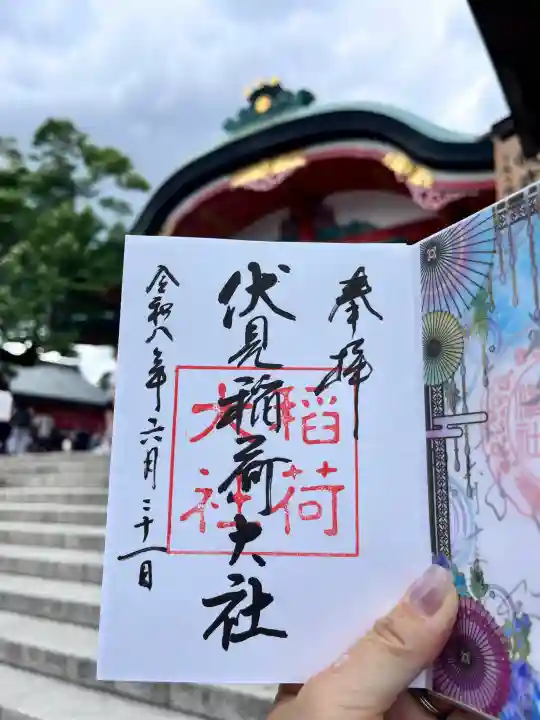 奉拝
伏見稲荷大社
稲荷
大社
令和八年六月二十一日